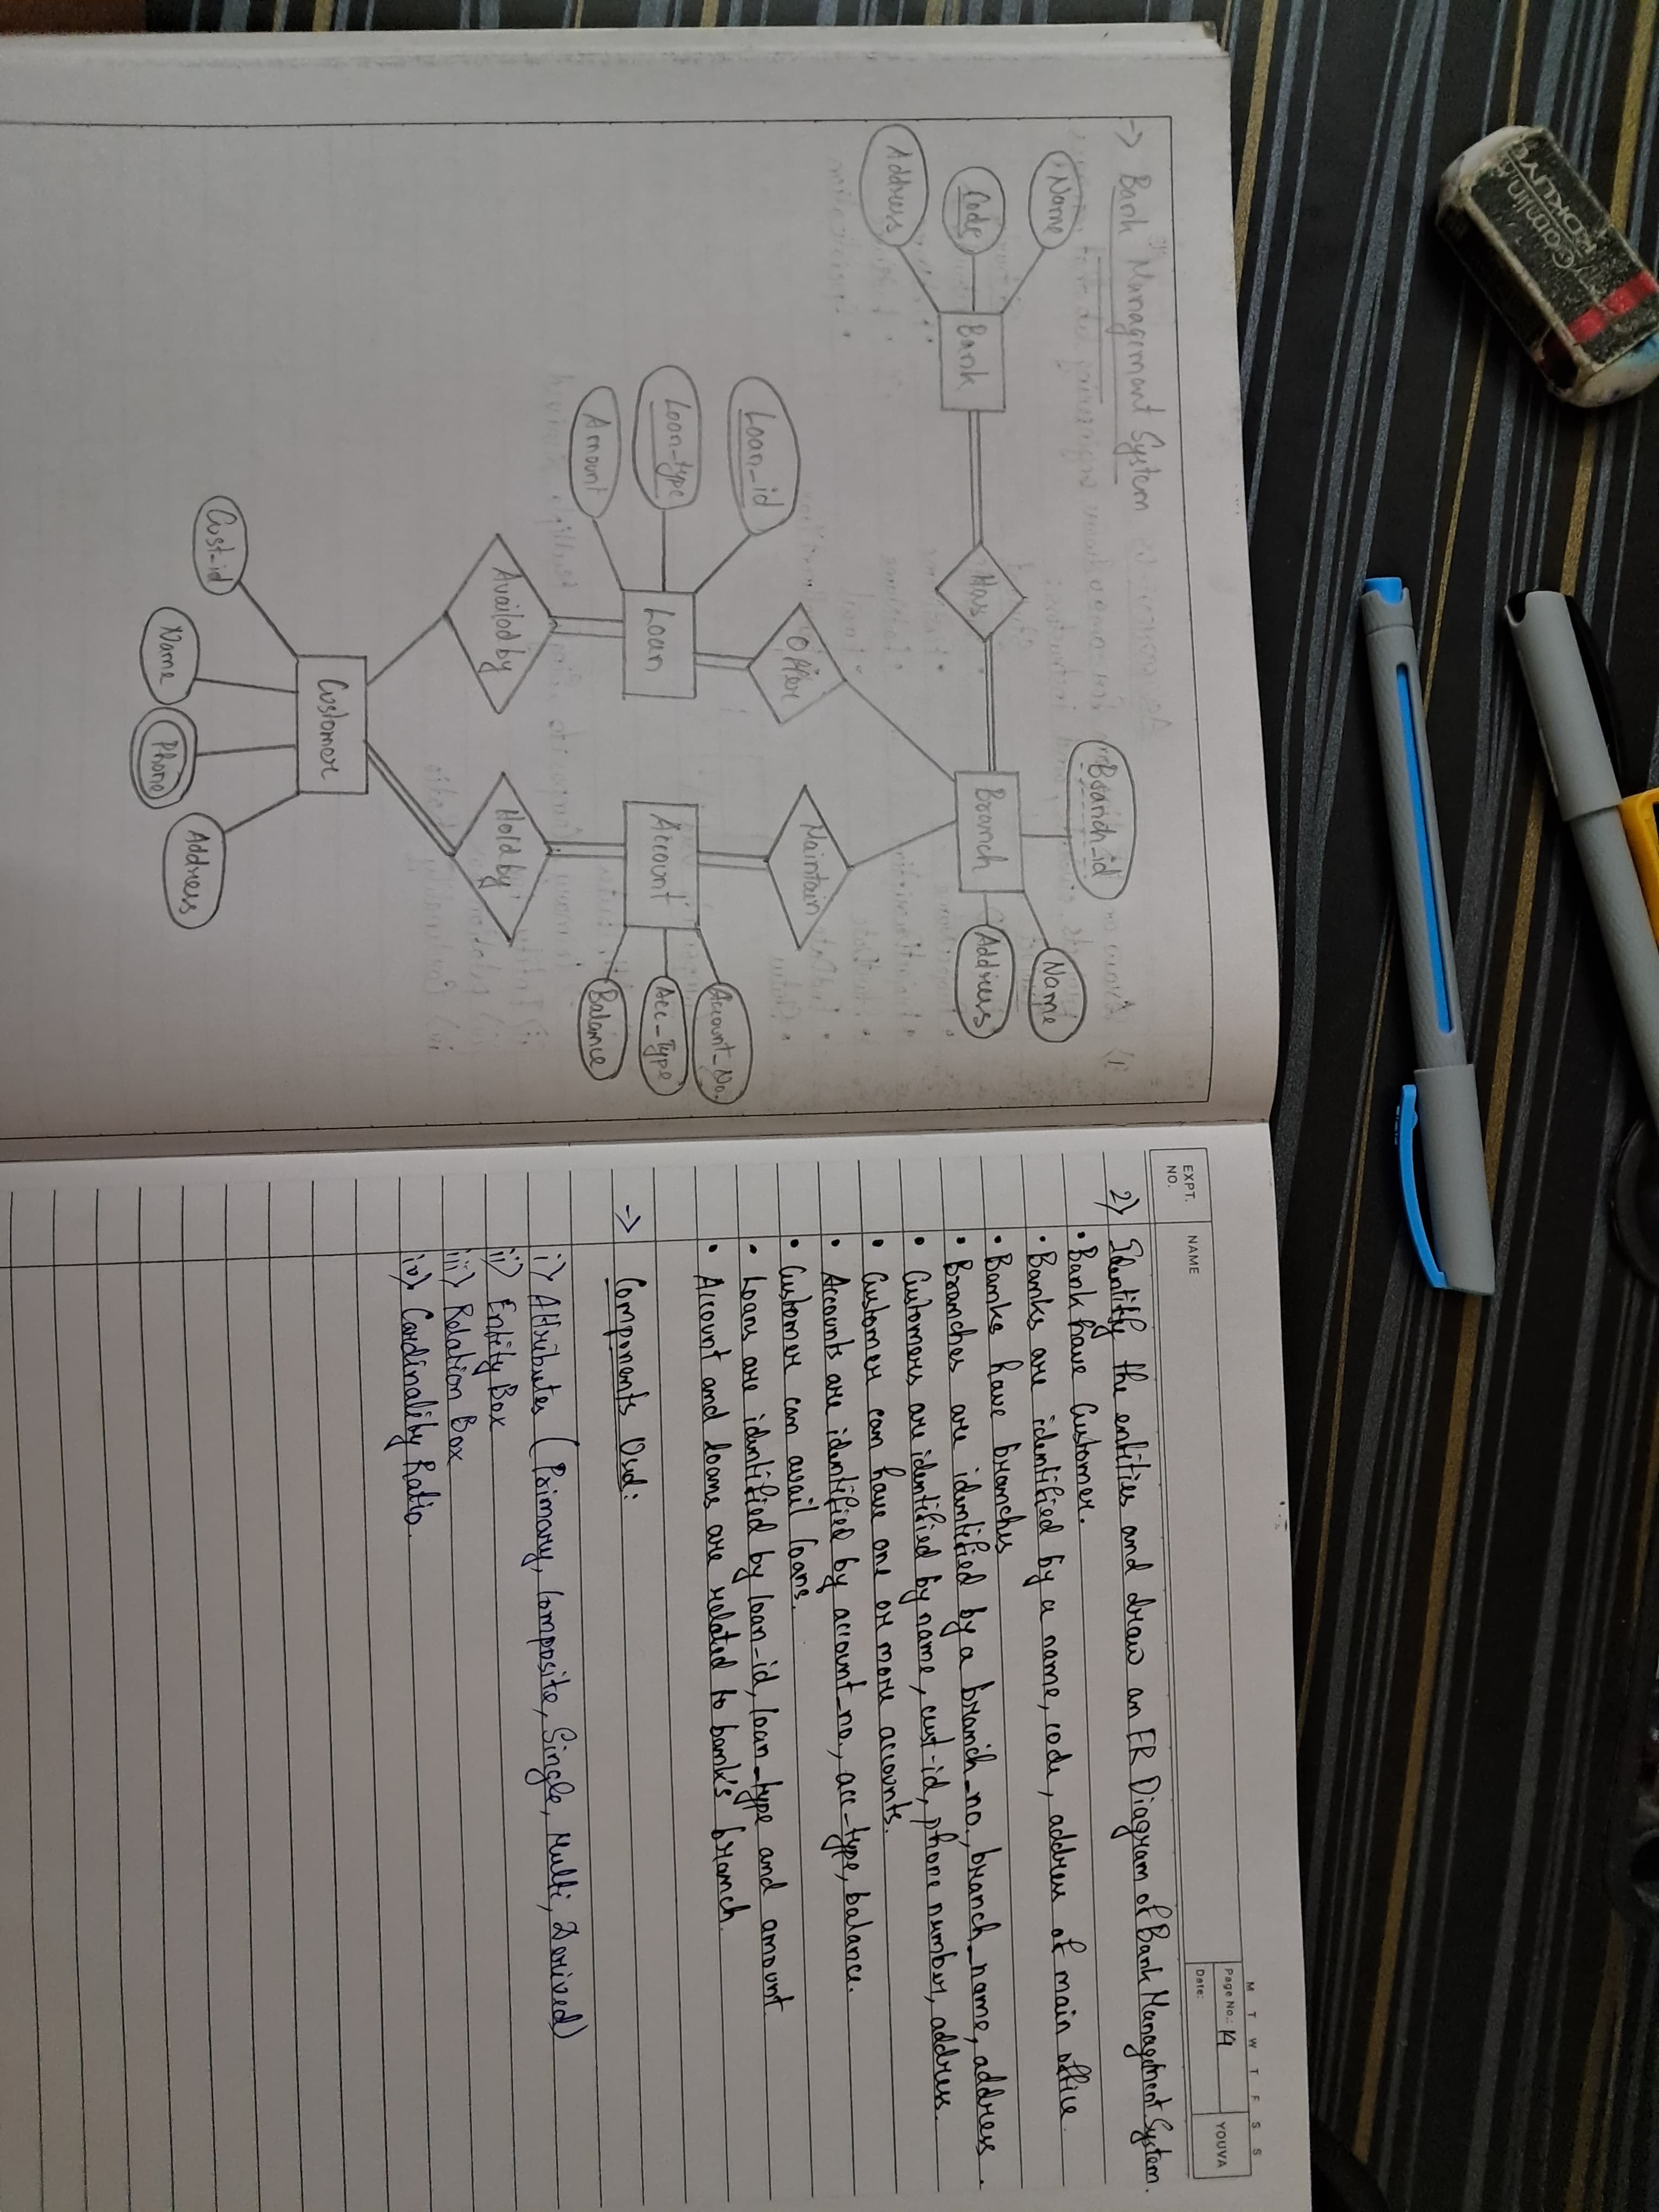 -> Bank Management System
Name
Code
Address
Bank
Has
Branch_id
Branch
Name
Address
Offer
Maintain
Loan_id
Loan_type
Amount
Loan
Account
Account_No.
Acc_Type
Balance
Availed by
Hold by
Customer
Cust_id
Name
Phone
Address
M T W T F S S
EXPT. NO.
NAME
Page No.: 14
Date:
YOUVA
2) Identify the entities and draw an ER Diagram of Bank Management System.
• Bank have Customer.
• Banks are identified by a name, code, address of main office
• Banks have branches
• Branches are identified by a branch_no., branch_name, address.
• Customers are identified by name, cust-id, phone number, address.
• Customer can have one or more accounts.
• Accounts are identified by account_no., acc-type, balance.
• Customer can avail loans.
• Loans are identified by loan-id, loan_type and amount.
• Account and loans are related to bank's branch.
-> Components Used:
i) Attributes (Primary, Composite, Single, Multi, Derived)
ii) Entity Box
iii) Relation Box
iv) Cardinality Ratio.
Camlin